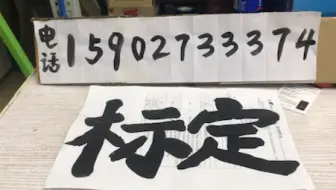 电话15902733374
标定